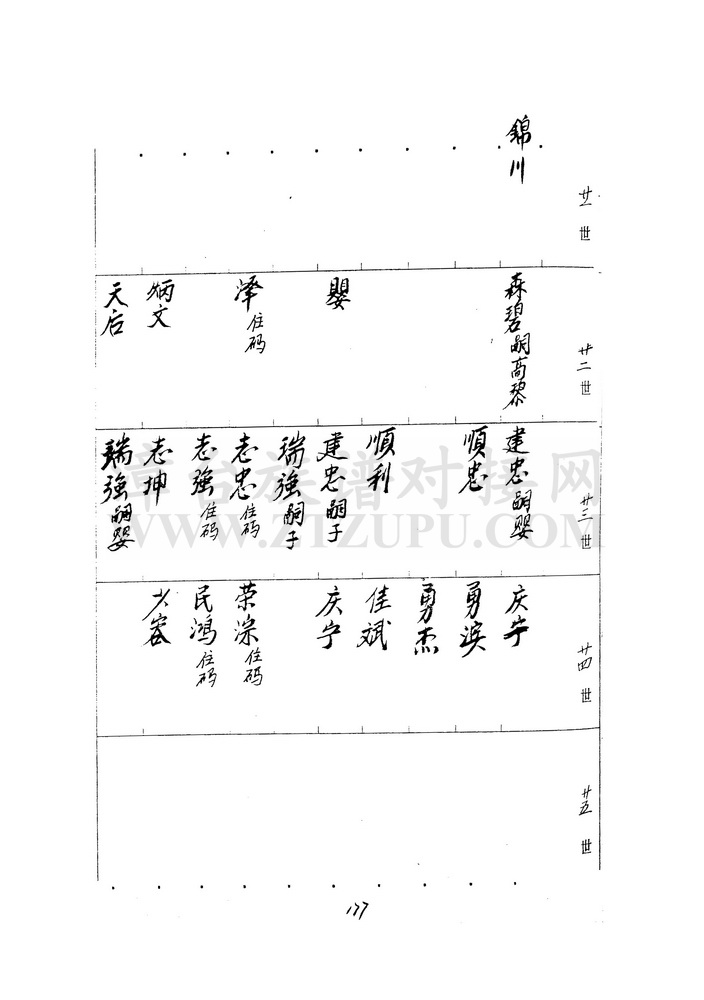 錦川
廿一世
廿二世
森碧嗣高黎
嬰
泽住码
炳文
天后
廿三世
建忠嗣嬰
順忠
順利
建忠嗣子
瑞強嗣子
志忠住码
志强住码
志坤
瑞強嗣婴
廿四世
庆宁
勇滨
勇杰
佳斌
庆宁
荣淙住码
民鸿住码
少容
廿五世
漳台族谱对接网
WWW.ZTZUPU.COM
177